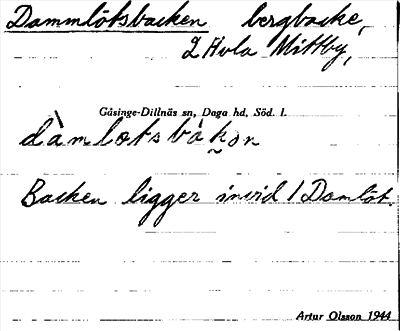 Dammlötsbacken bergbacke,
2 Hvla Mittby,
Gåsinge-Dillnäs sn, Daga hd, Söd. l.
dàmløtsbàkən
Backen ligger invid 1 Damlöt.
Artur Olsson 1944